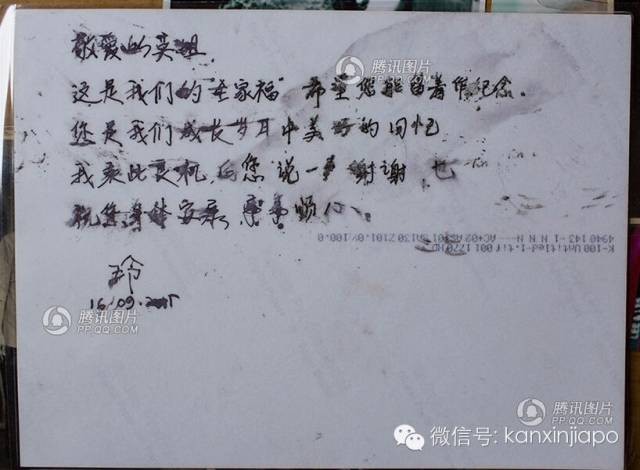 敬爱的英姐
腾讯图片
PP.QQ.COM
这是我们的"全家福"希望您能留着作纪念。
您是我们成长岁月中美好的回忆
我乘此良机,向您说一声谢谢,也
祝您身体安康,事事顺心。
K-100Untitled-1.tif 001 1770 HD
4940 143-1 N N N
玲
16.09.2015
腾讯图片
PP.QQ.COM
腾讯图片
PP.QQ.COM
微信号: kanxinjiapo